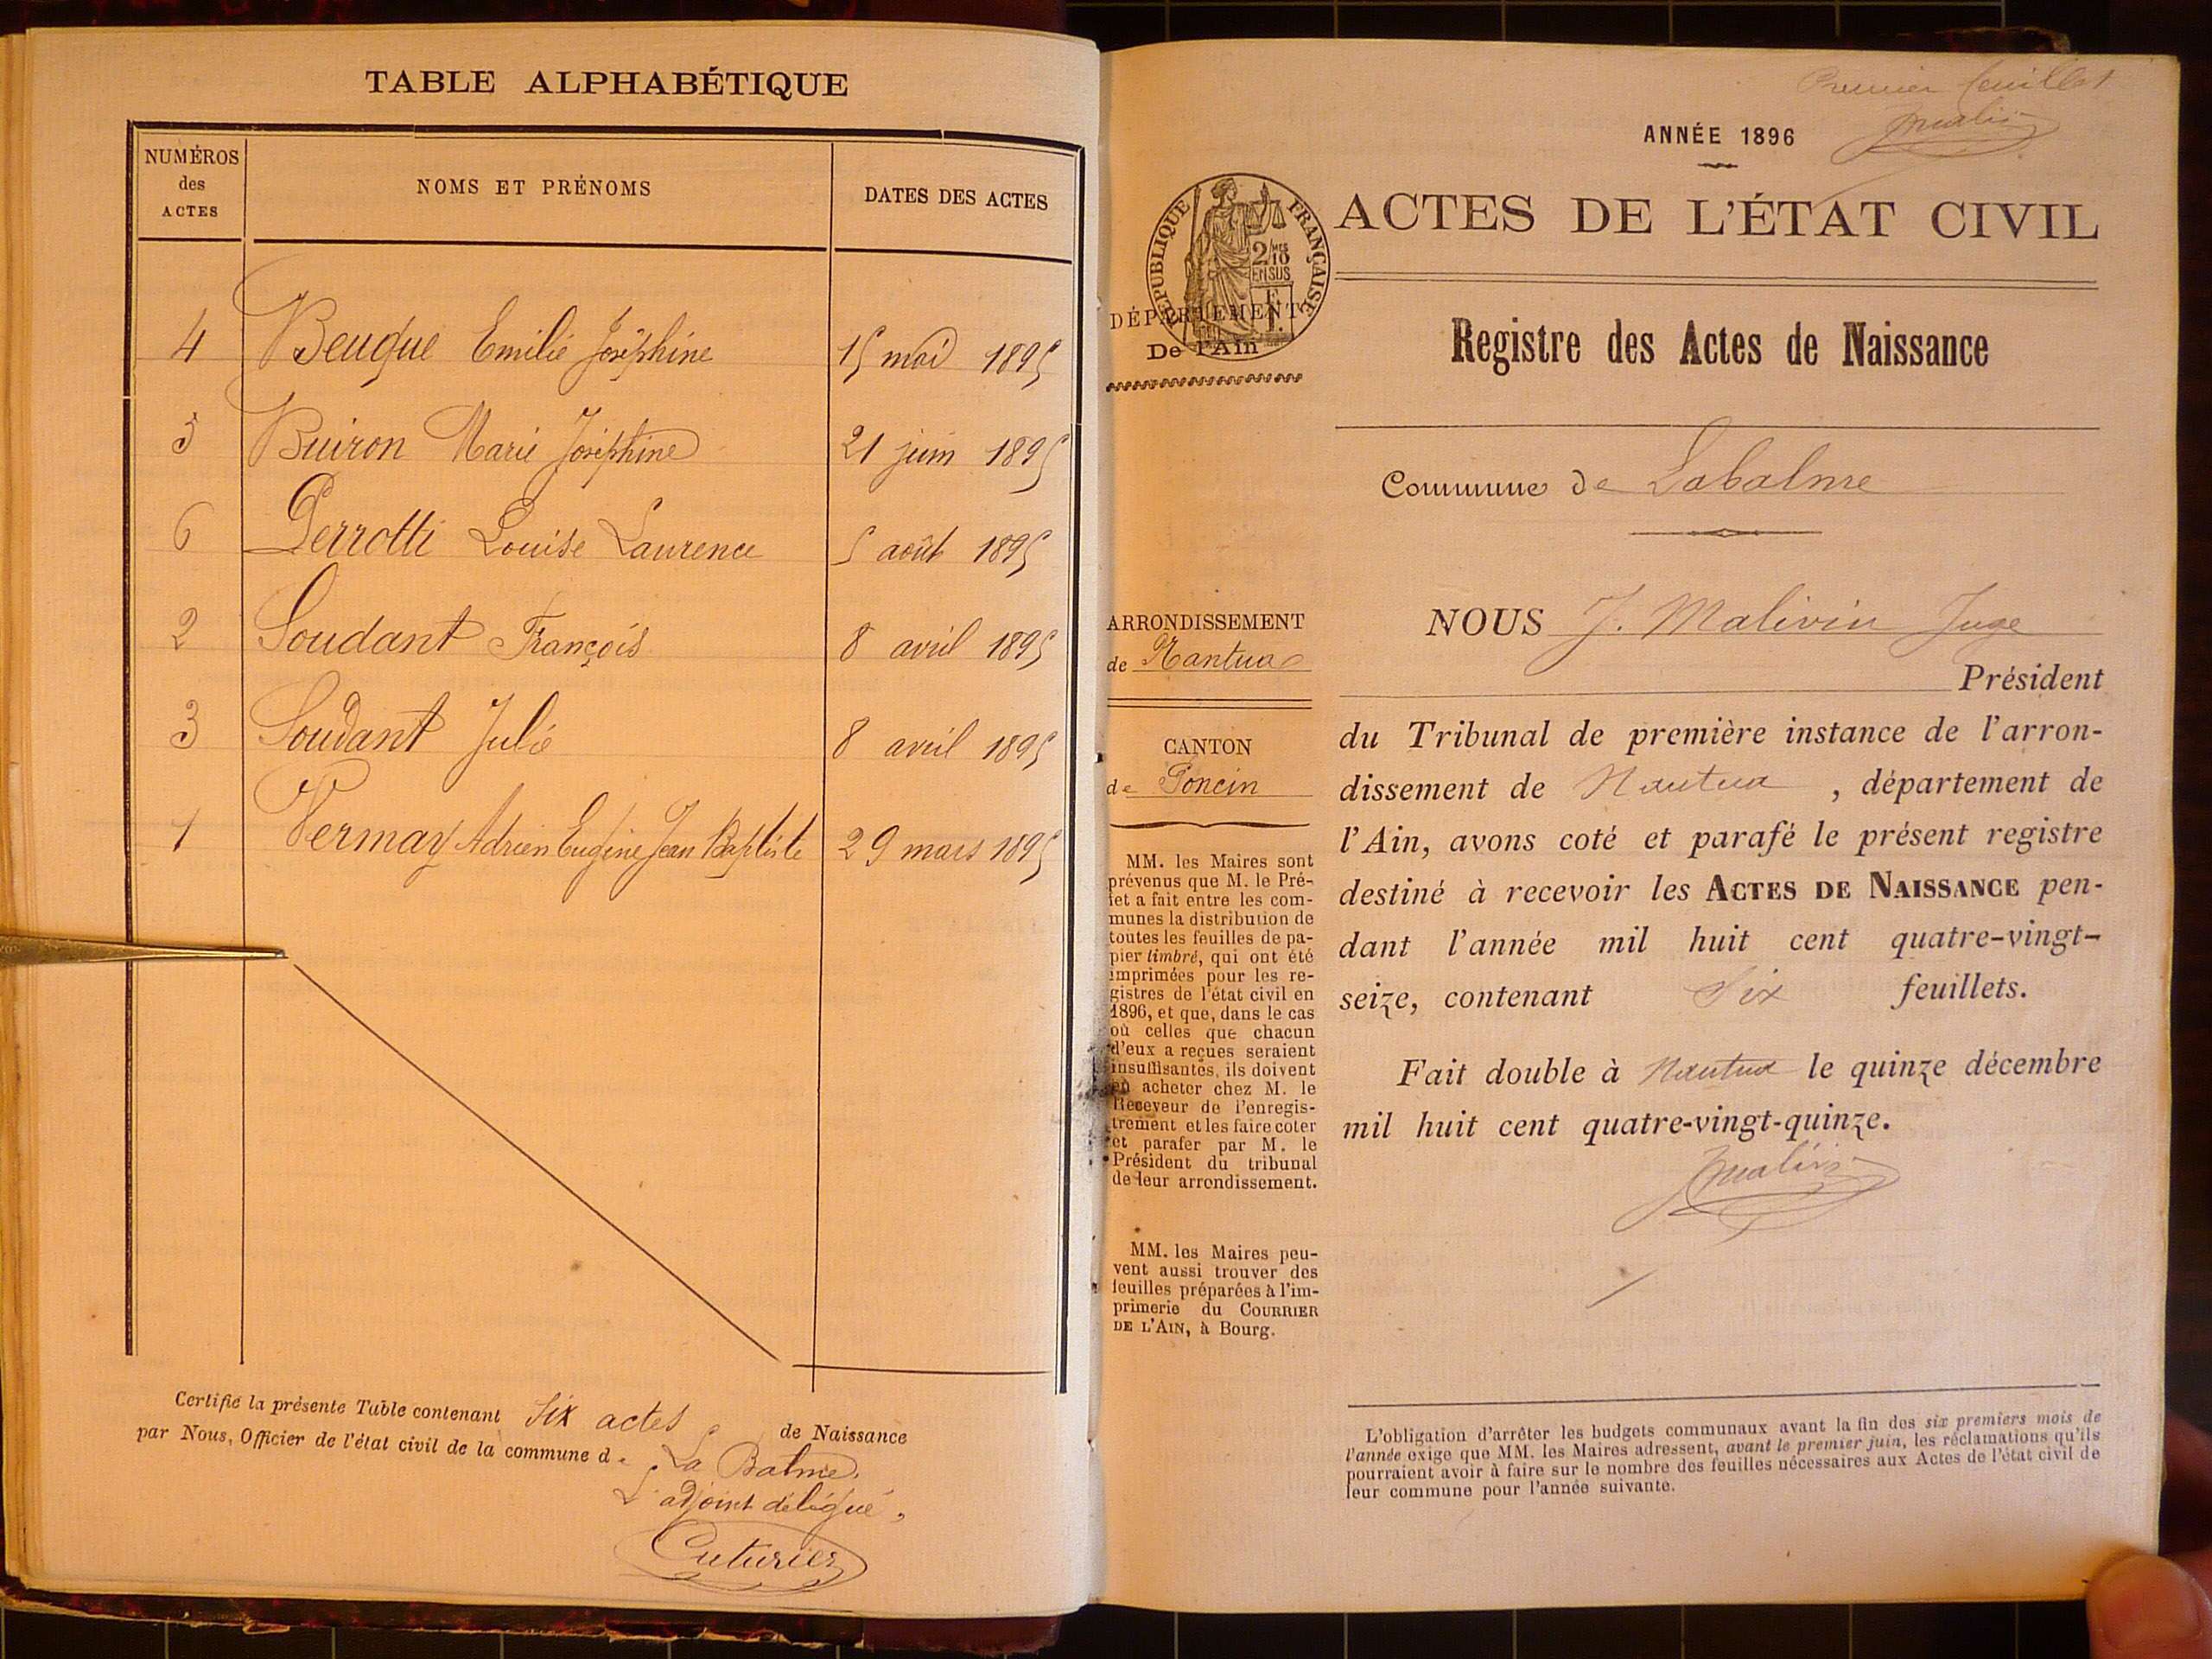 TABLE ALPHABÉTIQUE
NUMÉROS
des
ACTES
NOMS ET PRÉNOMS
DATES DES ACTES
4 Beuque Emilie Joséphine 15 mai 1895
5 Buiron Marie Joséphine 21 juin 1895
6 Perrotti Louise Laurence 5 août 1895
2 Soudant François 8 avril 1895
3 Soudant Julie 8 avril 1895
1 Vermay Adrien Eugène Jean Baptiste 29 mars 1895
Certifié la présente Table contenant six actes de Naissance
par Nous, Officier de l'état civil de la commune de La Balme.
L'adjoint délégué,
Cuturier
Premier feuillet
JMalivin
ANNÉE 1896
RÉPUBLIQUE FRANÇAISE
2/10
EN SUS
ACTES DE L'ÉTAT CIVIL
DÉPARTEMENT
De l'Ain
Registre des Actes de Naissance
Commune de Labalme
ARRONDISSEMENT
de Nantua
CANTON
de Poncin
MM. les Maires sont
prévenus que M. le Pré-
fet a fait entre les com-
munes la distribution de
toutes les feuilles de pa-
pier timbré, qui ont été
imprimées pour les re-
gistres de l'état civil en
1896, et que, dans le cas
où celles que chacun
d'eux a reçues seraient
insuffisantes, ils doivent
en acheter chez M. le
Receveur de l'enregis-
trement et les faire coter
et parafer par M. le
Président du tribunal
de leur arrondissement.
MM. les Maires peu-
vent aussi trouver des
feuilles préparées à l'im-
primerie du COURRIER
DE L'AIN, à Bourg.
NOUS J. Malivin Juge
Président
du Tribunal de première instance de l'arron-
dissement de Nantua , département de
l'Ain, avons coté et parafé le présent registre
destiné à recevoir les ACTES DE NAISSANCE pen-
dant l'année mil huit cent quatre-vingt-
seize, contenant Six feuillets.
Fait double à Nantua le quinze décembre
mil huit cent quatre-vingt-quinze.
JMalivin
L'obligation d'arrêter les budgets communaux avant la fin des six premiers mois de
l'année exige que MM. les Maires adressent, avant le premier juin, les réclamations qu'ils
pourraient avoir à faire sur le nombre des feuilles nécessaires aux Actes de l'état civil de
leur commune pour l'année suivante.